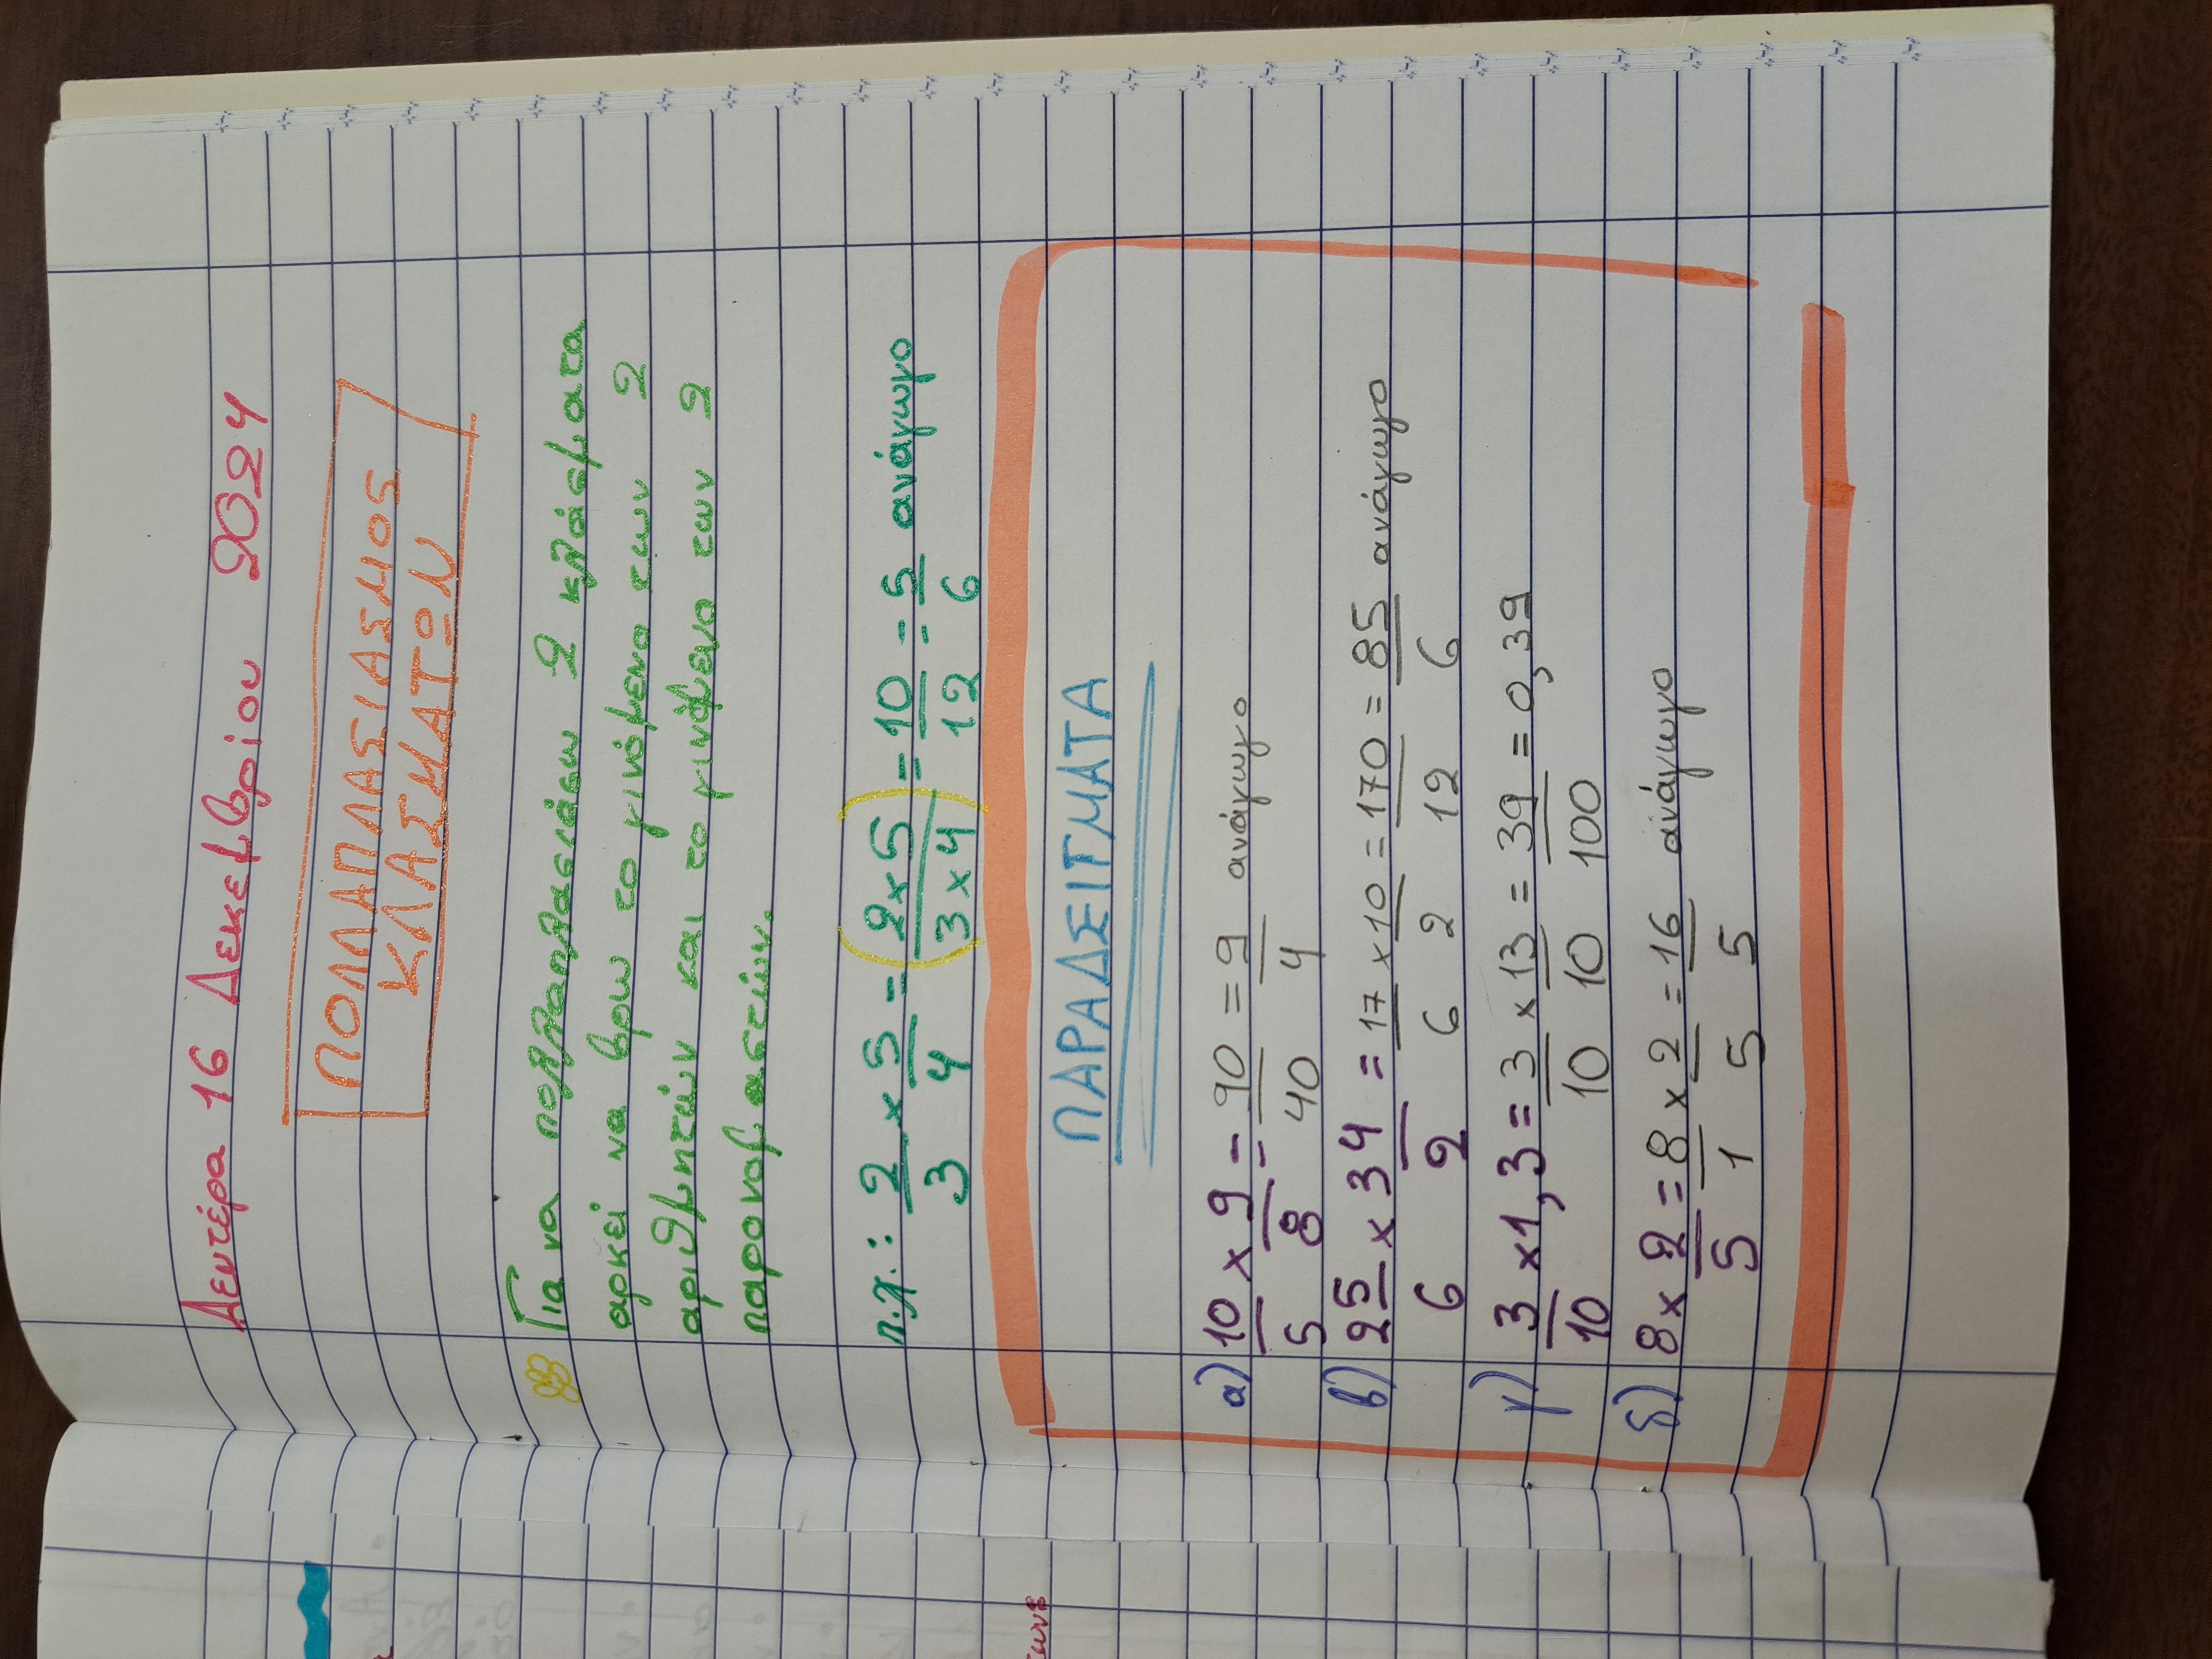 Δευτέρα 16 Δεκεμβρίου 2024
ΠΟΛΛΑΠΛΑΣΙΑΣΜΟΣ
ΚΛΑΣΜΑΤΩΝ
Για να πολλαπλασιάσω 2 κλάσματα
αρκεί να βρω το γινόμενο των 2
αριθμητών και το γινόμενο των 2
παρονομαστών.
π.χ.: 2/3 × 5/4 = (2×5/3×4) = 10/12 = 5/6 ανάγωγο
ΠΑΡΑΔΕΙΓΜΑΤΑ
α) 10/5 × 9/8 = 90/40 = 9/4 ανάγωγο
β) 2 5/6 × 3 4/2 = 17/6 × 10/2 = 170/12 = 85/6 ανάγωγο
γ) 3/10 × 1,3 = 3/10 × 13/10 = 39/100 = 0,39
δ) 8 × 2/5 = 8/1 × 2/5 = 16/5 ανάγωγο